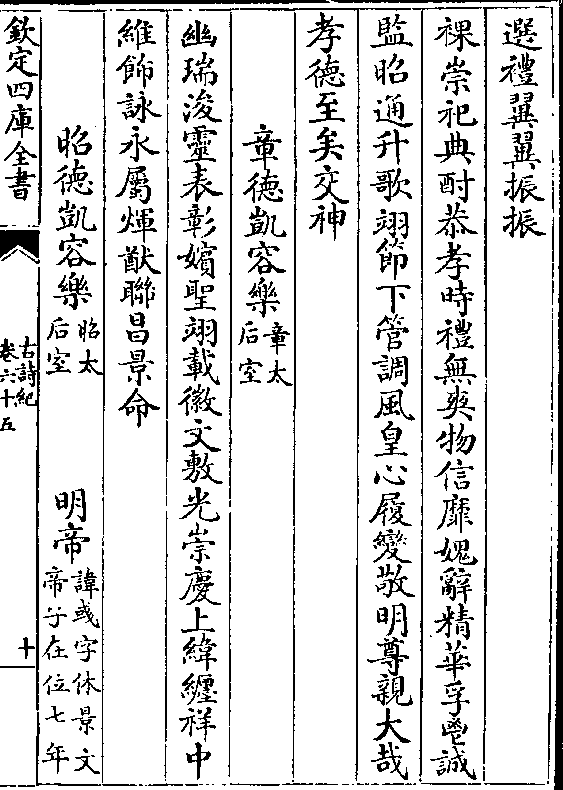 選禮翼翼振振
祼崇祀典酎恭孝時禮無爽物信靡媿辭精華孚鬯誠
監昭通升歌翊節下管調風皇心履變敬明尊親大哉
孝德至矣交神
章德凱容樂章太后室
幽瑞浚靈表彰嬪聖翊載徽文敷光崇慶上緯纏祥中
維飾詠永屬煇猷聯昌景命
昭德凱容樂昭太后室 明帝諱彧字休景文帝子在位七年
欽定四庫全書 古詩紀卷六十五 十